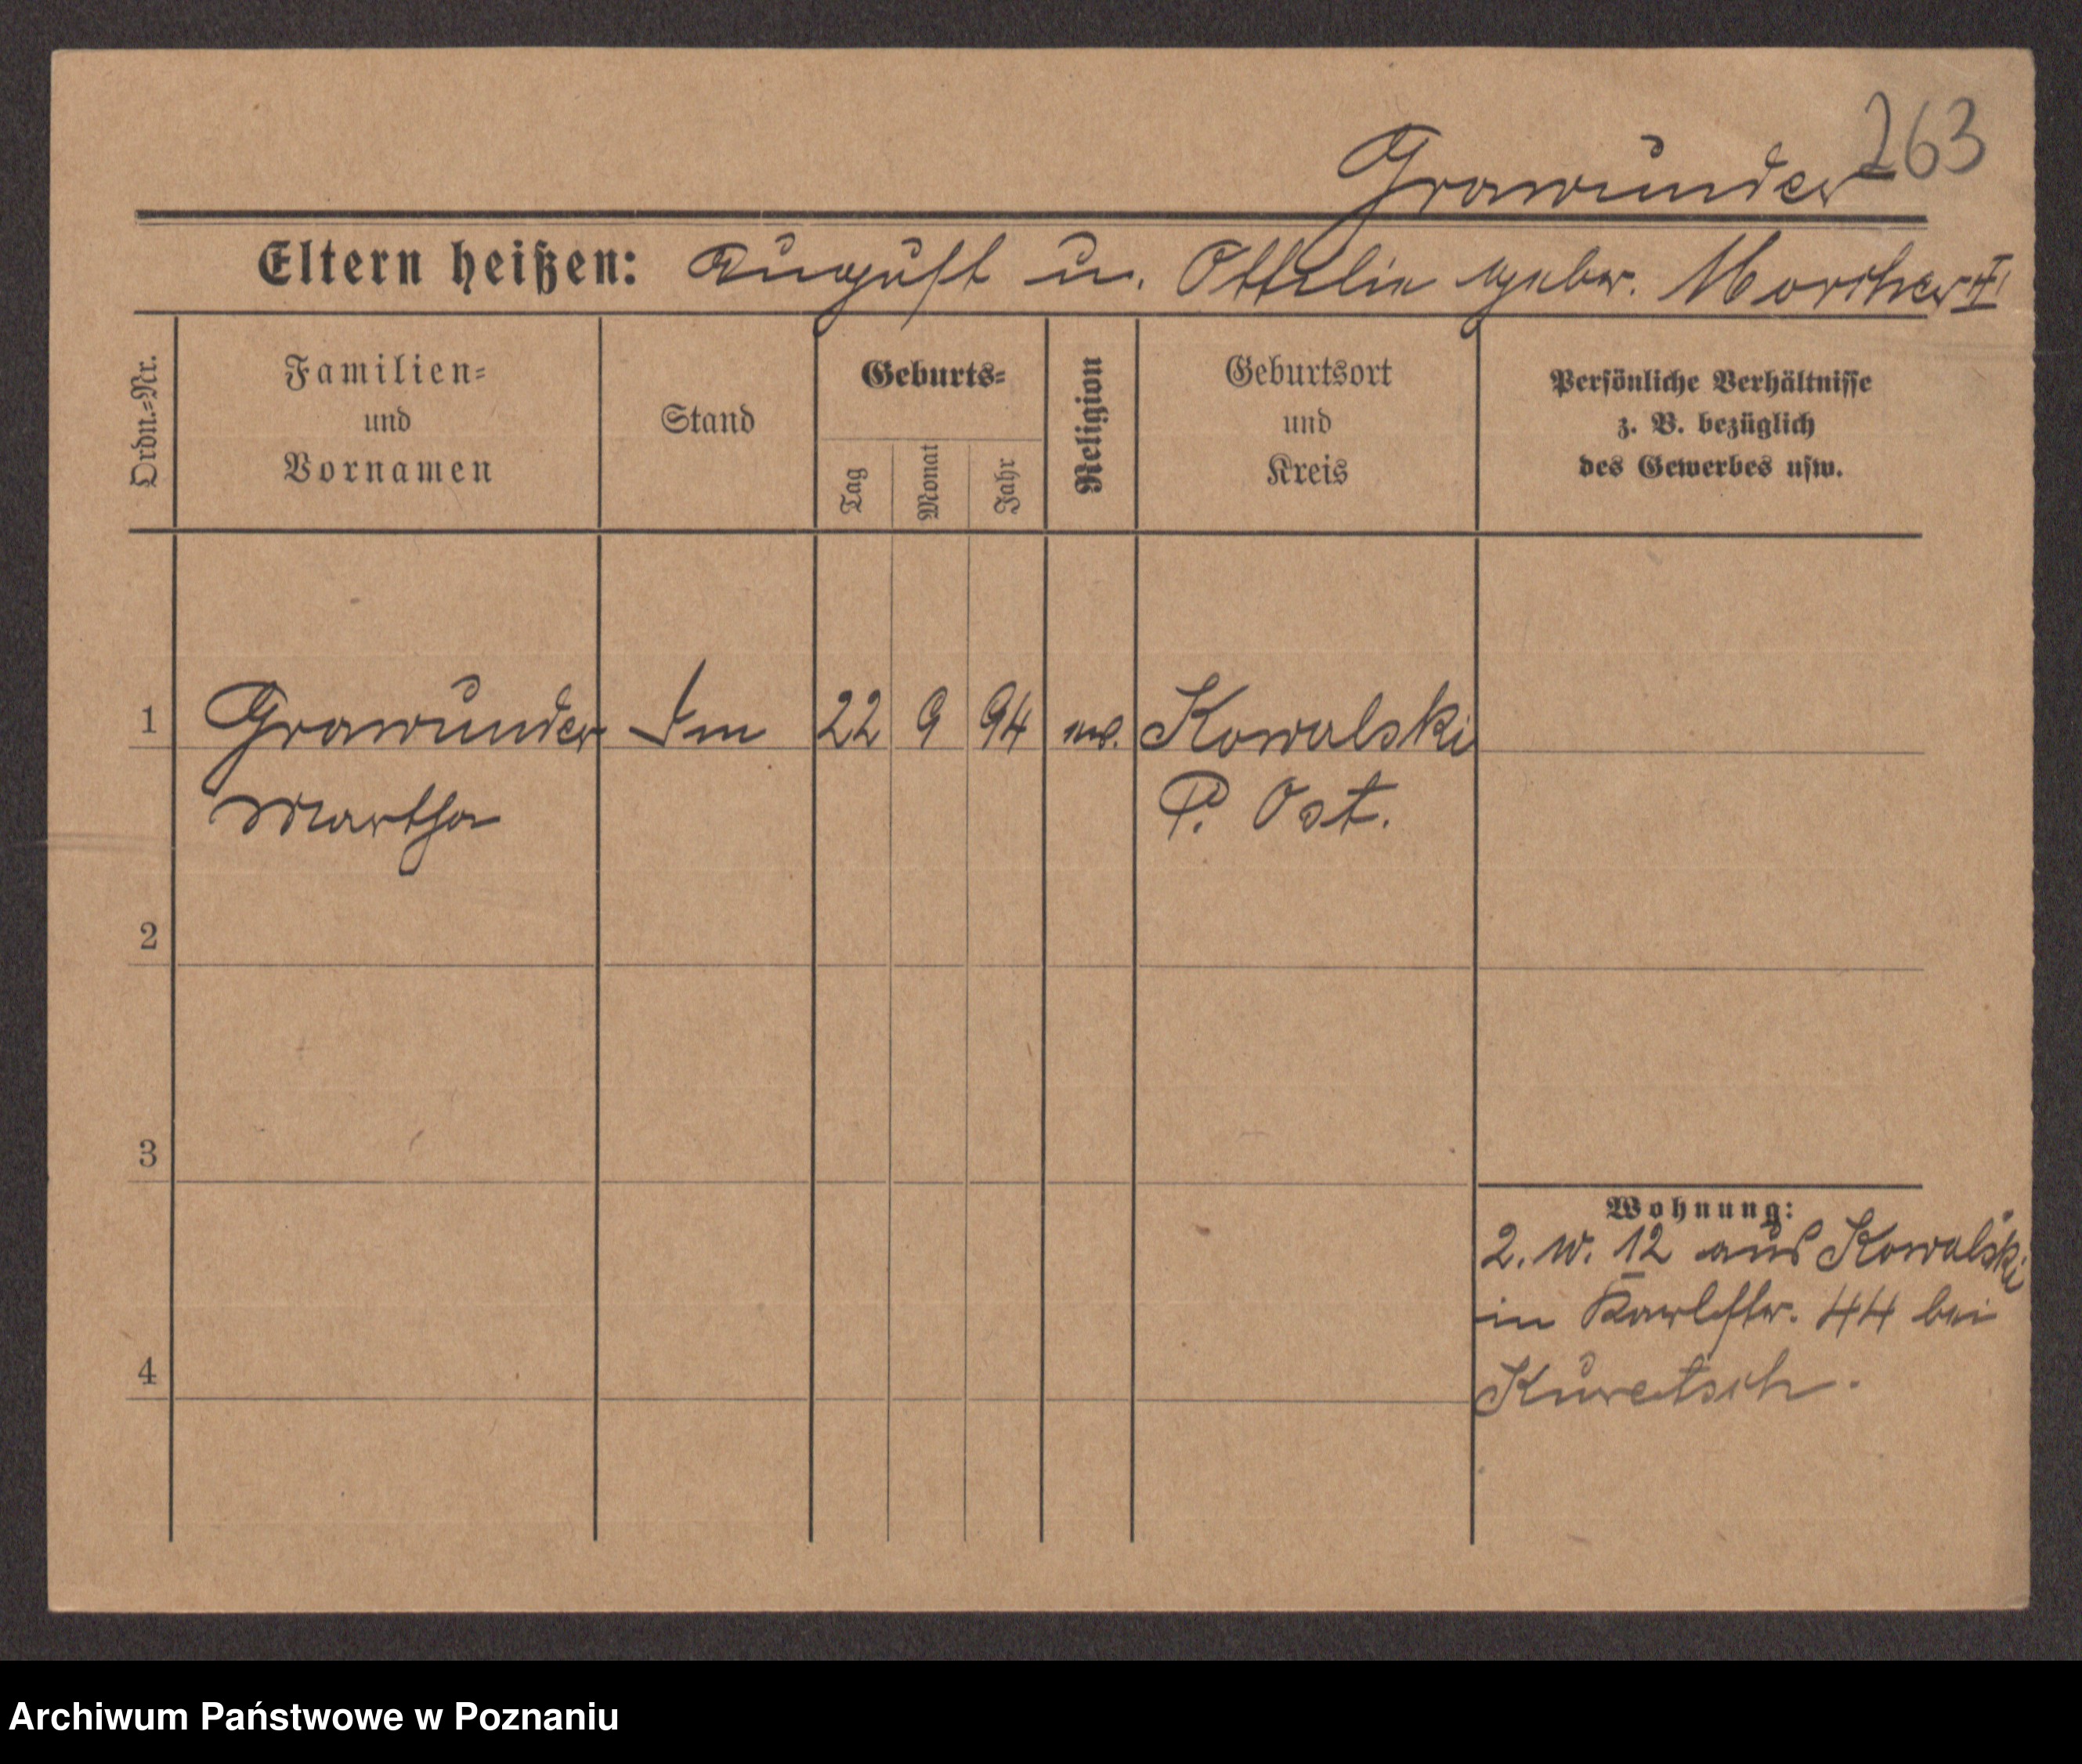 263
Grawunder
Eltern heißen: August u. Ottilie geb.
Ordn.-Nr.
Familien-
und
Vornamen
Stand
Geburts-
Tag
Monat
Jahr
Religion
Geburtsort
und
Kreis
Persönliche Verhältnisse
z. B. bezüglich
des Gewerbes usw.
1 Grawunder 22 9 94 Kowalski
Martha P. Ost.
2
3
4
Wohnung:
2. 12 aus Kowalski
in Karlstr. 44 bei
Archiwum Państwowe w Poznaniu